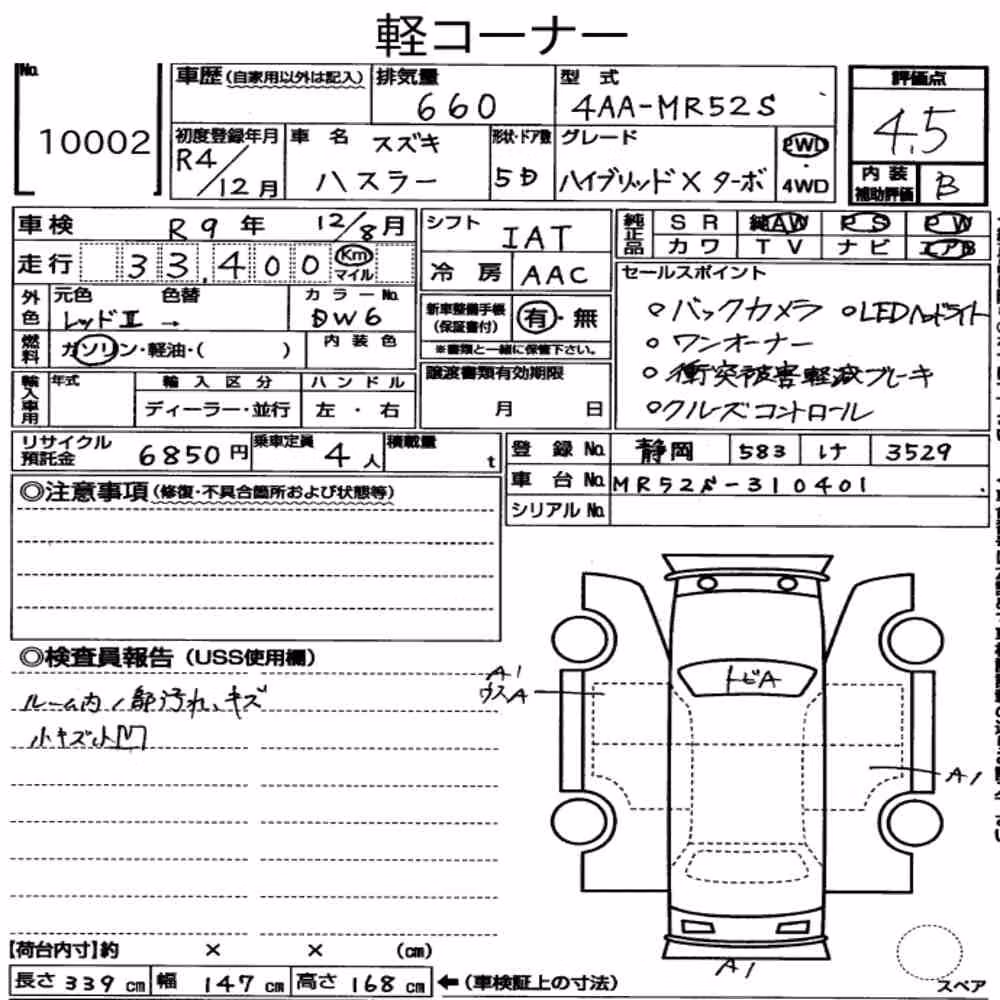 軽コーナー
No.
10002
車歴 (自家用以外は記入)
排気量
660
型 式
4AA-MR52S
評価点
4.5
初度登録年月
R4/12月
車 名 スズキ
ハスラー
形状・ドア数
5D
グレード
ハイブリッドX ターボ
2WD
・
4WD
内 装
補助評価
B
車検 R9年 12/8月
走行 33,400 Km
マイル
シフト
IAT
冷 房 AAC
純正品
SR 純AW PS PW
カワ TV ナビ エアB
セールスポイント
○バックカメラ ○LEDヘッドライト
○ワンオーナー
○衝突被害軽減ブレーキ
○クルーズコントロール
外色
元色 色替
レッドⅡ →
カラーNo.
DW6
新車整備手帳
(保証書付)
有・無
※書類と一緒に保管下さい。
燃料
ガソリン・軽油・( )
内 装 色
輸入車用
年式
輸 入 区 分
ディーラー・並行
ハ ン ド ル
左 ・ 右
譲渡書類有効期限
月 日
リサイクル
預託金
6850円
乗車定員
4人
積載量
t
登 録 No. 静岡 583 け 3529
車 台 No. MR52S-310401
シリアル No.
◎注意事項(修復・不具合箇所および状態等)
◎検査員報告(USS使用欄)
ルーム内1部汚れ、キズ
小キズ小凹
A1
ウスA
トビA
A1
A1
【荷台内寸】約 × × (cm)
長さ 339 cm 幅 147 cm 高さ 168 cm ←(車検証上の寸法)
スペア